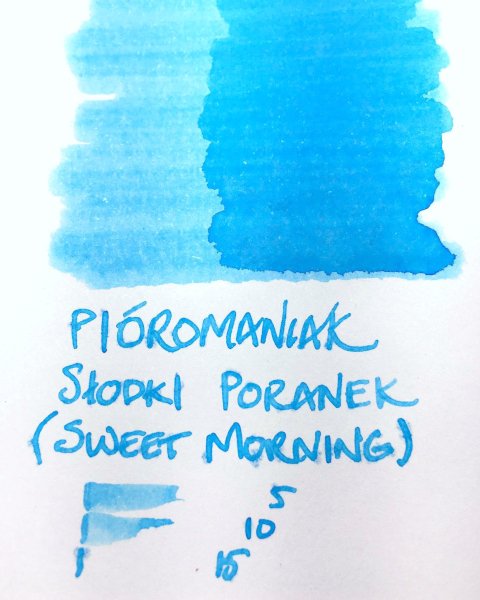 PIÓROMANIAK
SŁODKI PORANEK
(SWEET MORNING)
5
10
15